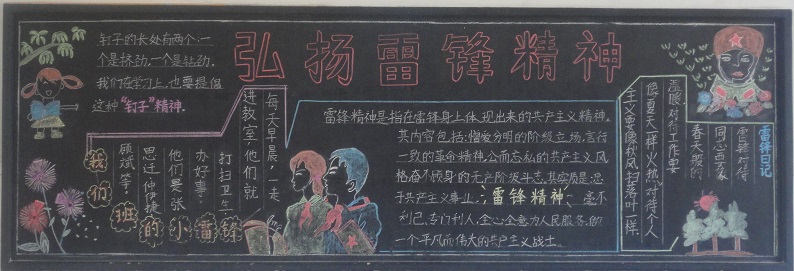 弘扬雷锋精神
钉子的长处有两个,一
个是挤劲,一个是钻劲。
我们在学习上,也要提倡
这种“钉子”精神。
每天早晨,一走
进教室,他们就
打扫卫生
办好事。
他们是张
思迁 仲伊捷
顾斌等。
我们班的小雷锋
雷锋精神是指在雷锋身上体现出来的共产主义精神。
其内容包括:憎爱分明的阶级立场,言行
一致的革命精神,公而忘私的共产主义风
格,奋不顾身的无产阶级斗志,其实质是忠
于共产主义事业,雷锋精神 毫不
利己,专门利人,全心全意为人民服务,做
一个平凡而伟大的共产主义战士。
雷锋日记
雷锋对待
同志要象
春天般的
温暖 对待工作要
像夏天一样火热 对待个人
主义要像秋风扫落叶一样